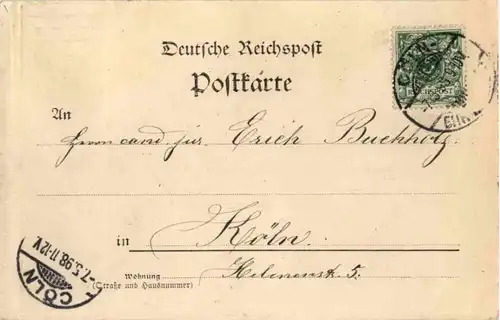 Deutsche Reichspost
Postkarte
REICHSPOST
CÖLN
An
Herrn cand. jur. Erich Buchholz
in Köln.
Wohnung Helenenstr. 5.
(Straße und Hausnummer)
CÖLN
-7.5.98.11-12V.